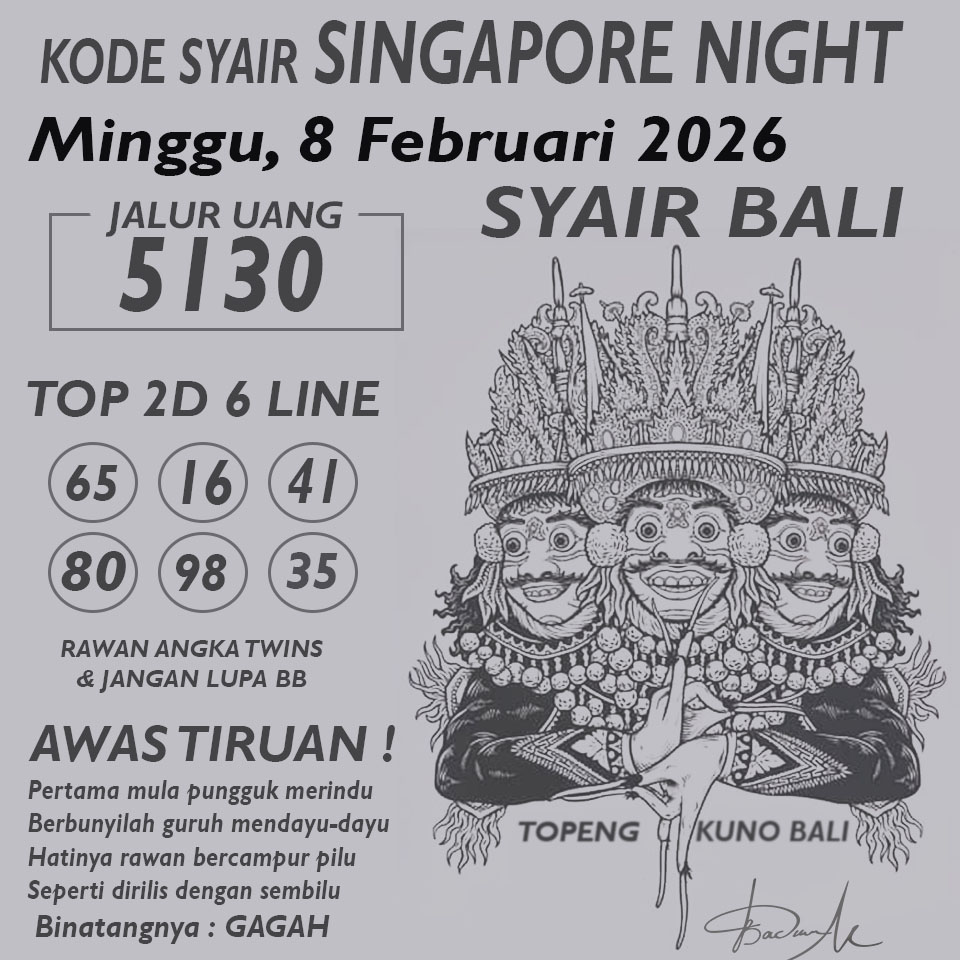 KODE SYAIR SINGAPORE NIGHT
Minggu, 8 Februari 2026
SYAIR BALI
JALUR UANG
5130
TOP 2D 6 LINE
65 16 41
80 98 35
RAWAN ANGKA TWINS
& JANGAN LUPA BB
AWAS TIRUAN !
Pertama mula pungguk merindu
Berbunyilah guruh mendayu-dayu
Hatinya rawan bercampur pilu
Seperti dirilis dengan sembilu
Binatangnya : GAGAH
TOPENG KUNO BALI